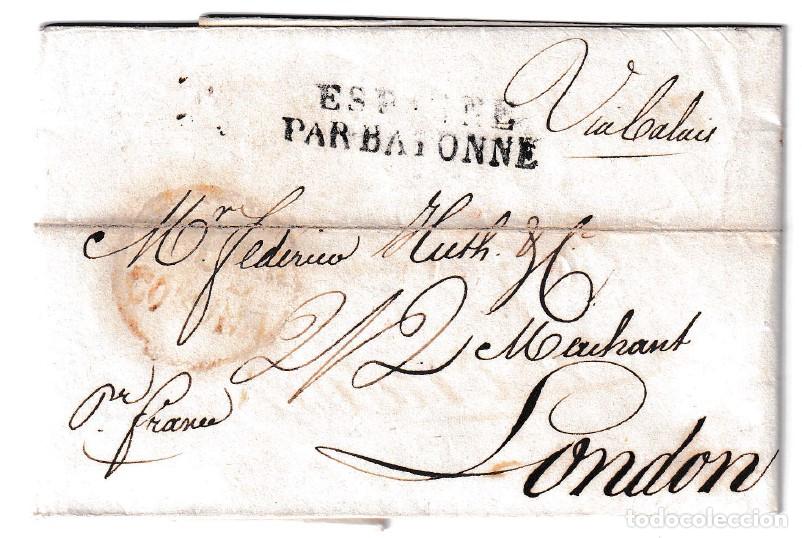 Via Calais
ESPAGNE
PAR BAYONNE
Mr. Federico Huth. & Co
2/2 Merchant
pr. France
London
todocoleccion